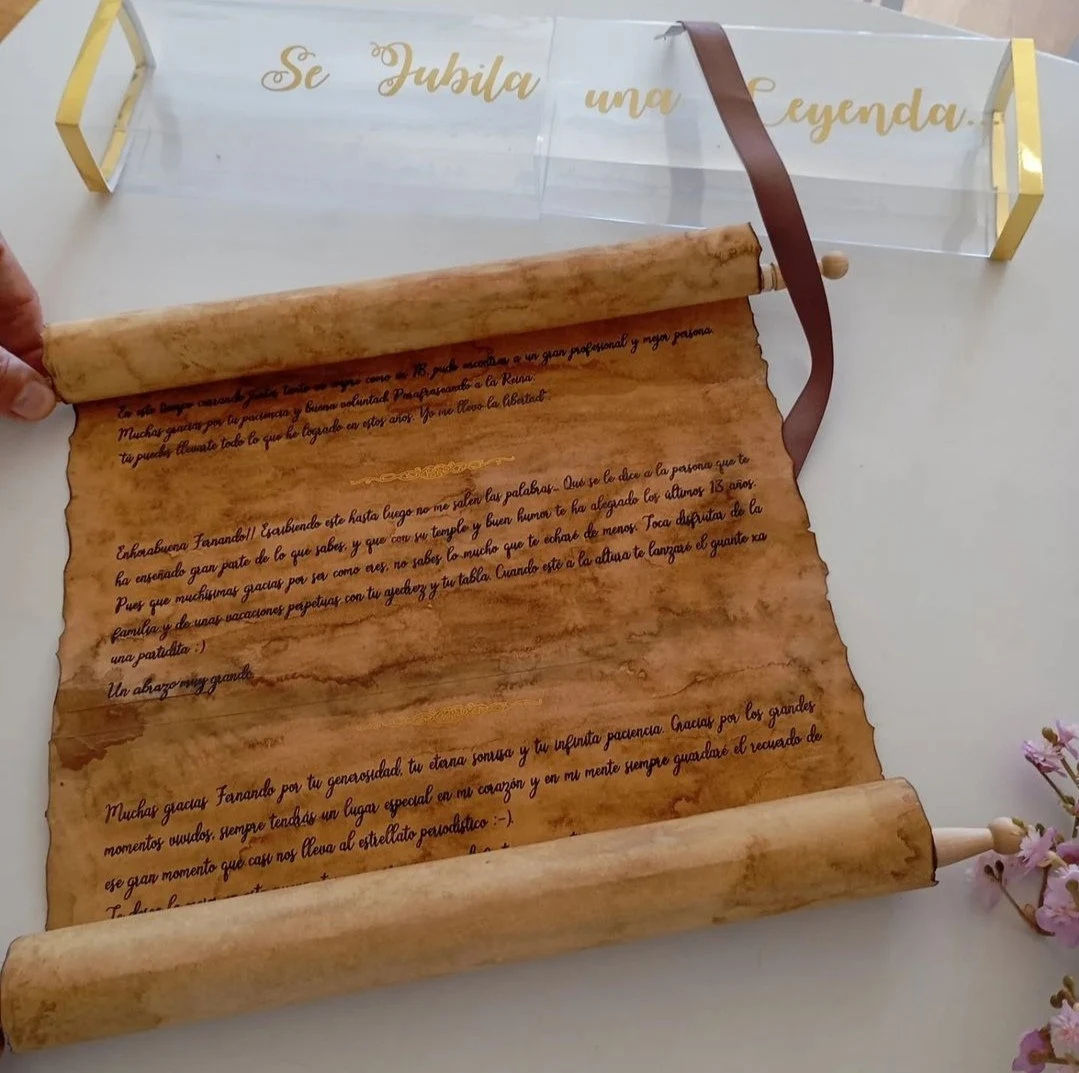 Se Jubila una Leyenda...
En este tiempo currando juntos, tanto en negro como en 1B, pude encontrar a un gran profesional y mejor persona.
Muchas gracias por tu paciencia y buena voluntad. Parafraseando a la Reina:
"tú puedes llevarte todo lo que he logrado en estos años. Yo me llevo la libertad".
Enhorabuena Fernando!! Escribiendo este hasta luego no me salen las palabras... Qué se le dice a la persona que te
ha enseñado gran parte de lo que sabes, y que con su temple y buen humor te ha alegrado los últimos 13 años.
Pues que muchísimas gracias por ser como eres, no sabes lo mucho que te echaré de menos. Toca disfrutar de la
familia y de unas vacaciones perpetuas con tu ajedrez y tu tabla. Cuando esté a la altura te lanzaré el guante xa
una partidita :)
Un abrazo muy grande.
Muchas gracias Fernando por tu generosidad, tu eterna sonrisa y tu infinita paciencia. Gracias por los grandes
momentos vividos, siempre tendrás un lugar especial en mi corazón y en mi mente siempre guardaré el recuerdo de
ese gran momento que casi nos lleva al estrellato periodístico :-).
Te deseo lo